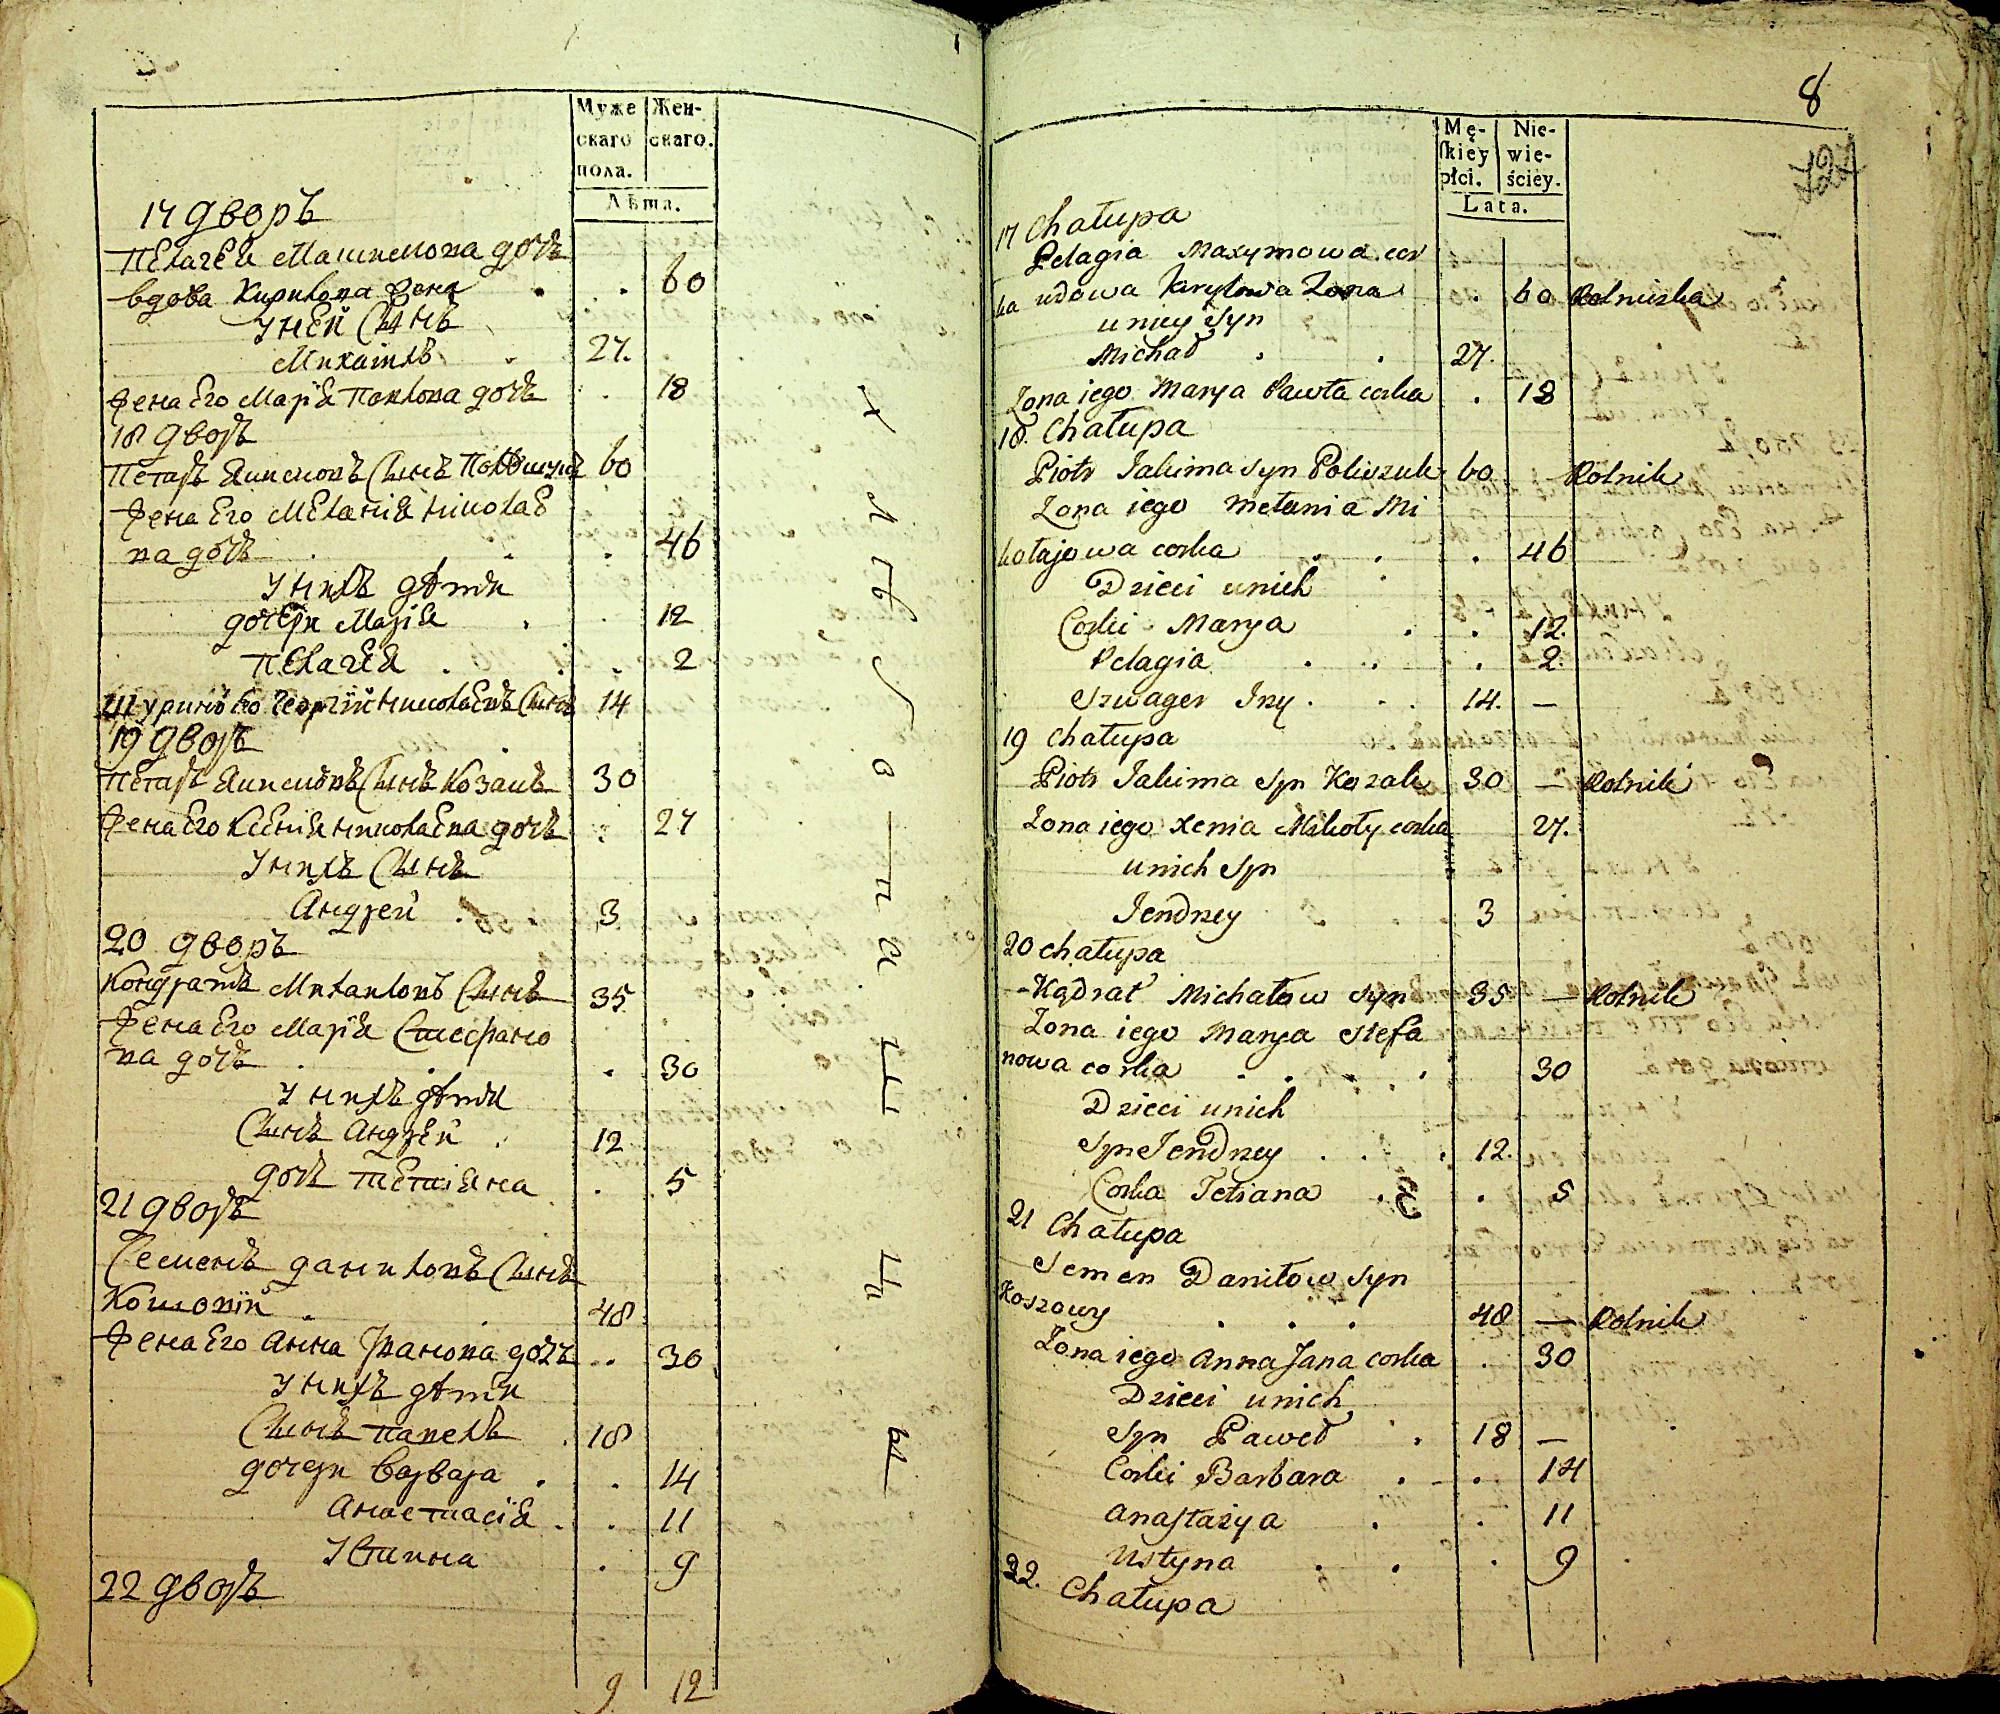 Муже
скаго
пола.
Жен-
скаго.
Лѣта.
17 дворъ
Пелагея Машимова дочь
вдова Кирилова жена . . 60
У ней Сынъ
Михаилъ . 27.
жена Его Марія Павлова дочь . 18
18 дворъ
Петаръ Якимовъ Сынъ Полѣшукъ 60
жена Его Меланія Николае
ва дочь . . . 46
У нихъ дѣти
дочери Марія . . 12
Пелагея . . . 2
Шуринъ Его Георгій Николаевъ Сынъ 14
19 дворъ
Петаръ Якимовъ Сынъ Козакъ 30
жена Его Ксенія Николаевна дочь . 27
У нихъ Сынъ
Андрей . 3
20 дворъ
Кондратъ Михаиловъ Сынъ 35
жена Его Марія Стефано
ва дочь . . . 30
У нихъ дѣти
Сынъ Андрей . 12
дочь Тетіяна . 5
21 дворъ
Семенъ Даниловъ Сынъ
Кошовій . . 48
жена Его Анна Іванова дочь . . 30
У нихъ дѣти
Сынъ Павелъ . 18
дочери Варвара . . 14
Анастасія . . 11
Устина . 9
22 дворъ
9 12
Хлѣбопашцы
8
727
Mę-
skiey
płci.
Nie-
wie-
ściey.
Lata.
17 Chałupa
Pelagia Maxymowa cor
ka udowa Karyłowa Zona . 60 Rolniczka
u niey Syn
Michał . . 27.
Zona iego Marya Pawła corka . 18
18. Chałupa
Piotr Jakima syn Poliszuk 60 — Rolnik
Zona iego Mełania Mi
kołajowa corka . . . 46
Dzieci unich
Corki Marya . . 12.
Pelagia . . . 2.
Szwager Jrzy . . . 14. —
19 Chałupa
Piotr Jakima syn Kozak 30 — Rolnik
Zona iego Xenia Mikoły corka 27.
unich syn
Jendrzey 3
20 chałupa
Kądrat Michałow syn 35 — Rolnik
Zona iego Marya Stefa
nowa corka . . . . 30
Dzieci unich
Syn Jendrzey . . . 12.
Corka Tetiana . . 5
21 Chałupa
Semen Daniłow syn
Koszowy . . . 48 — Rolnik
Zona iego Anna Jana corka . 30
Dzieci unich
Syn Paweł . 18 —
Corki Barbara . . 14
Anastazya . . 11
Ustyna . . . 9
22. Chałupa